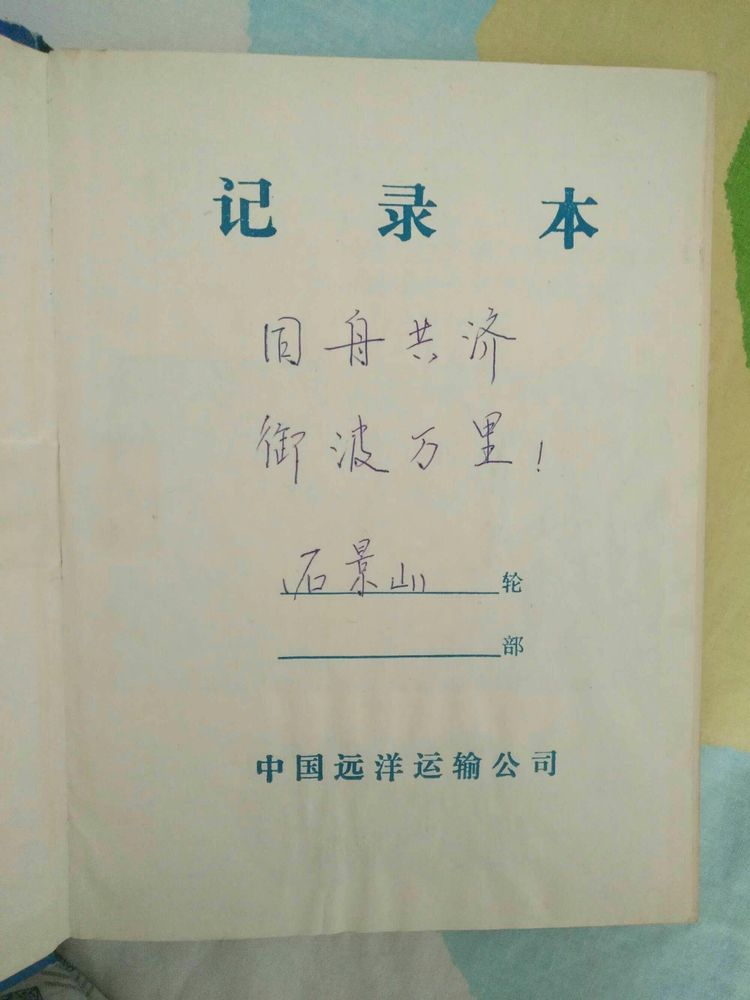 记录本
同舟共济
御波万里！
石景山轮
部
中国远洋运输公司